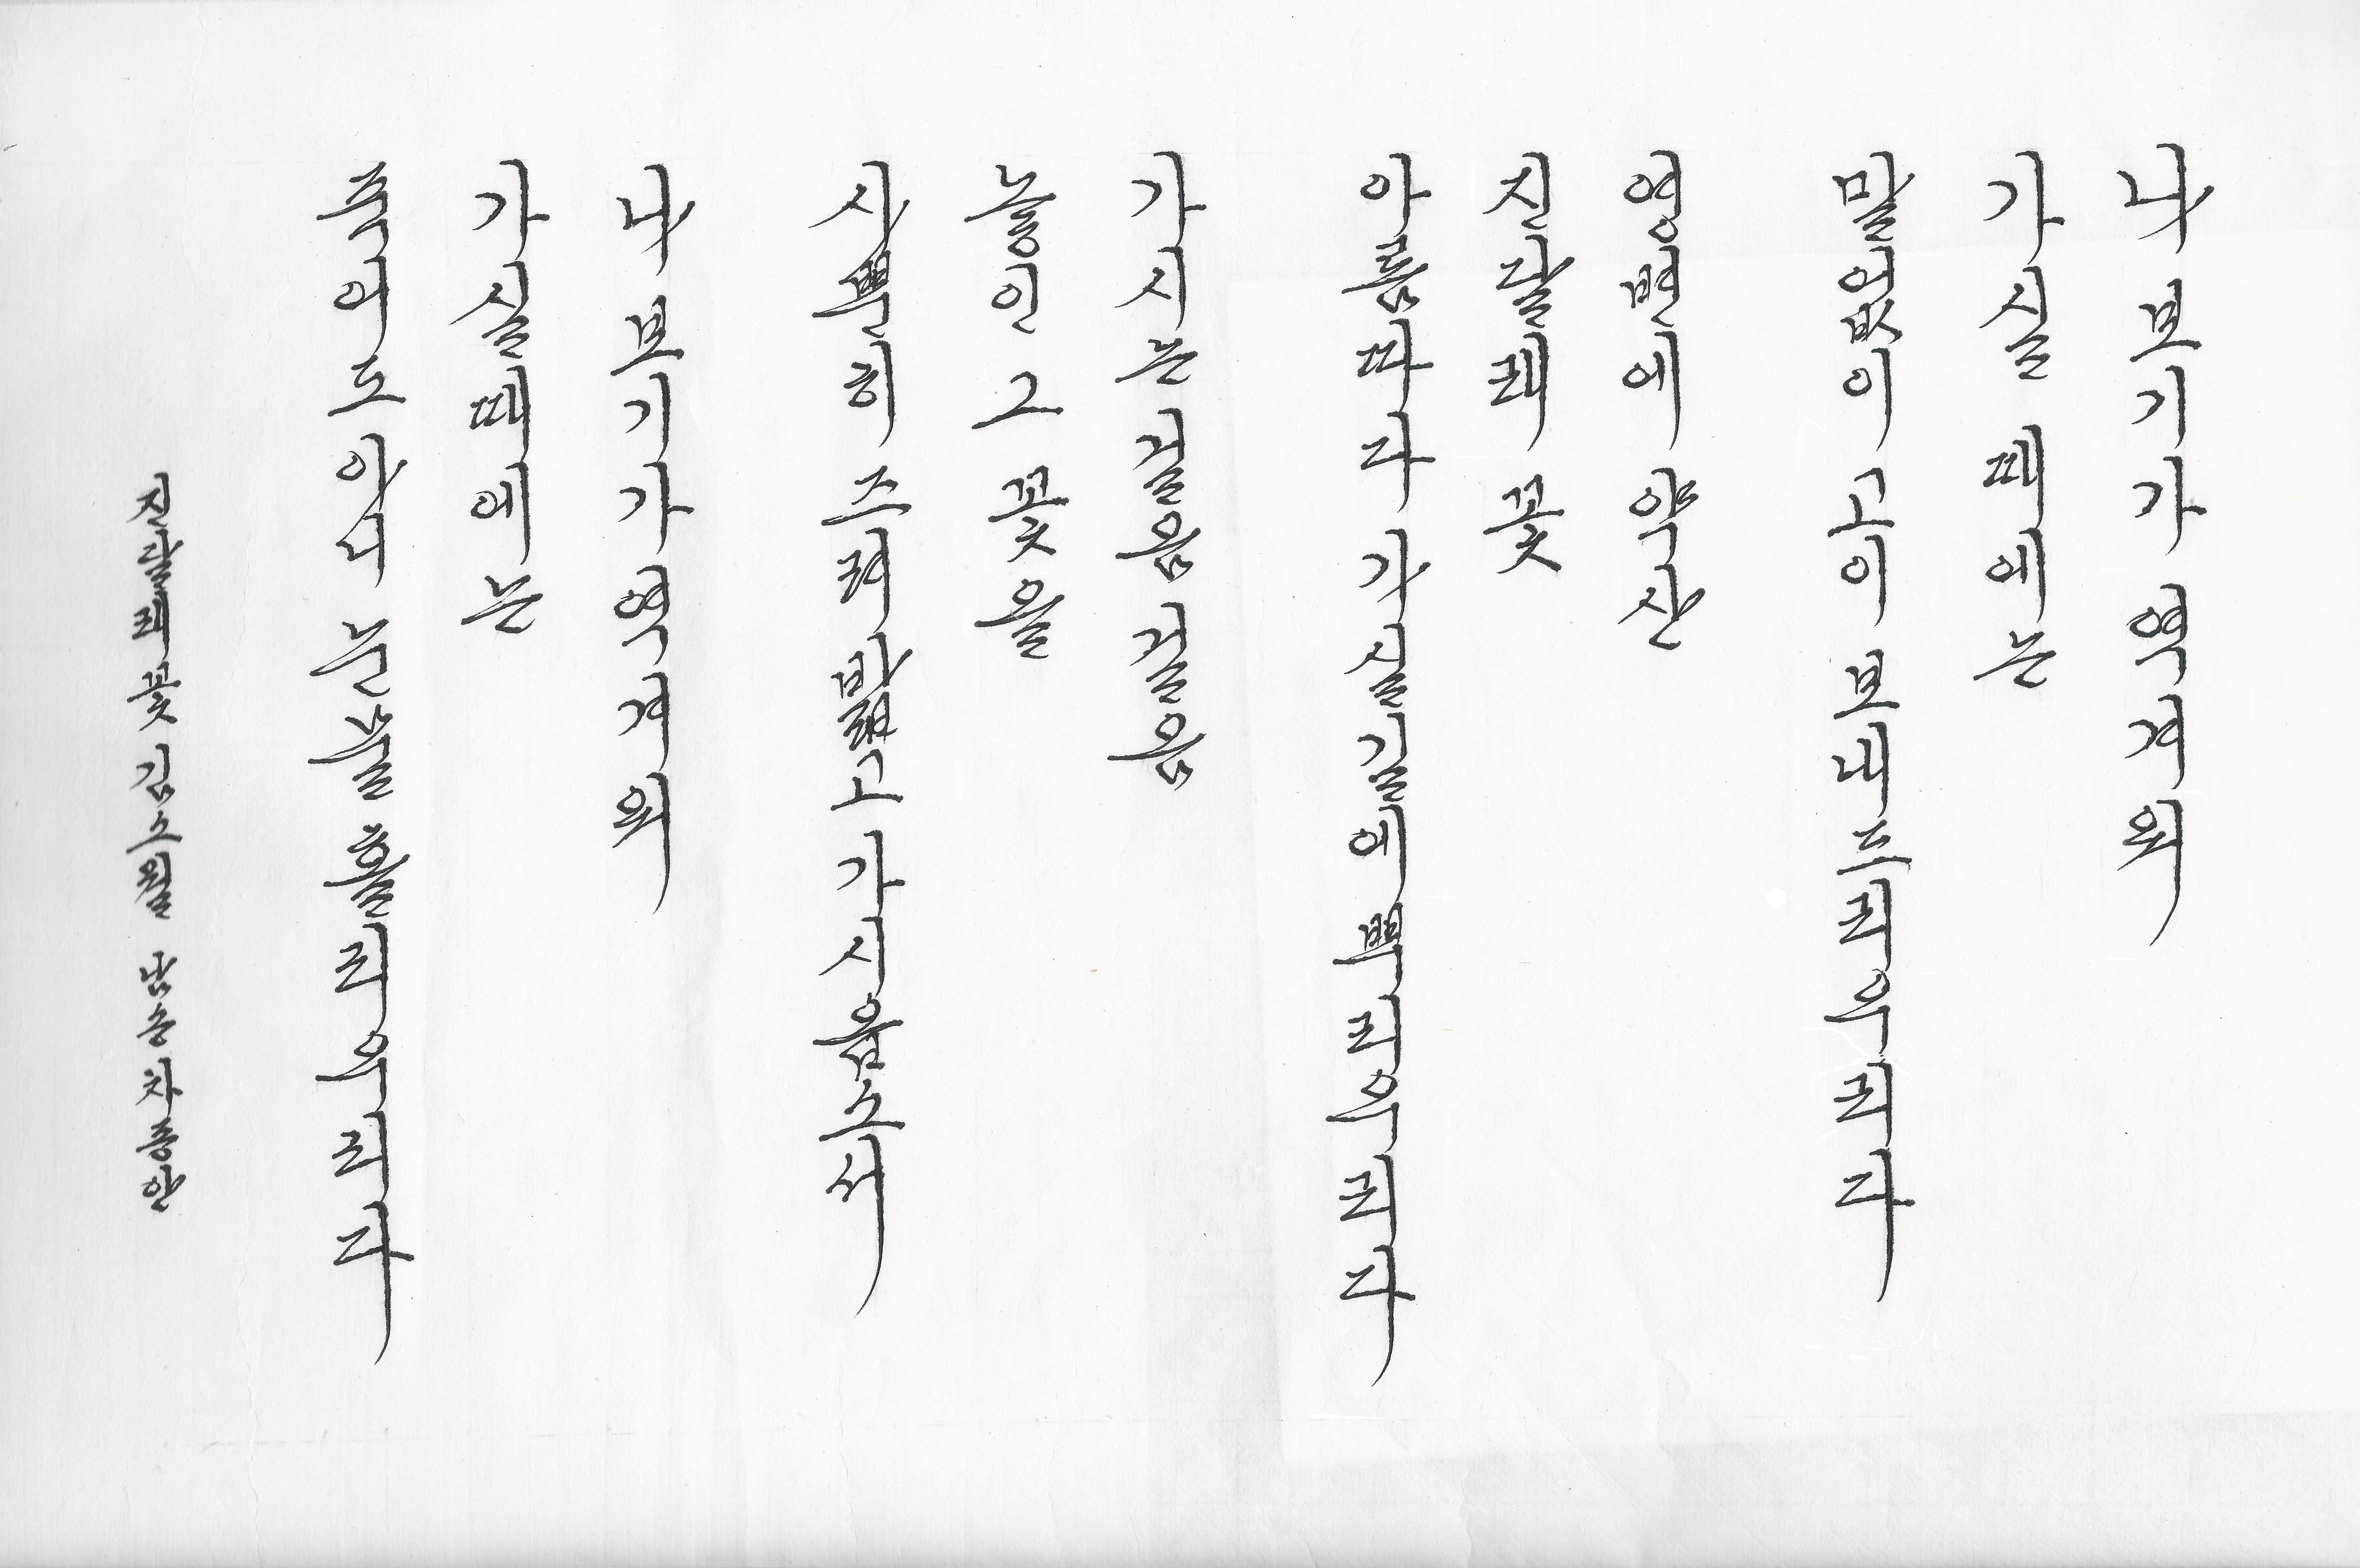 나 보기가 역겨워
가실 때에는
말없이 고이 보내드리우리다
영변에 약산
진달래 꽃
아름따다 가실길에 뿌리우리다
가시는 걸음 걸음
놓인 그 꽃을
사뿐히 즈려밟고 가시옵소서
나 보기가 역겨워
가실때에는
죽어도 아니 눈물 흘리우리다
진달래 꽃 김소월 남송 차종안